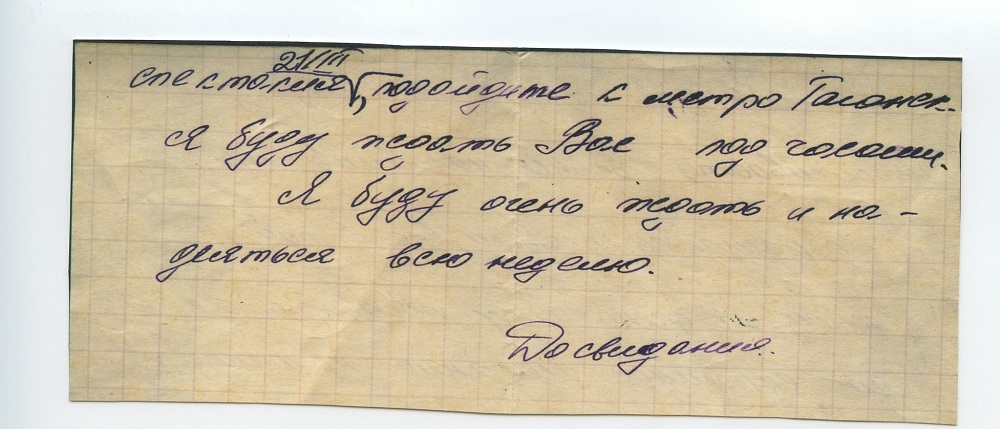 21/III
спектакля, подойдите к метро Таганск.
я буду ждать Вас под часами.
Я буду очень ждать и на-
деяться всю неделю.
До свидания.